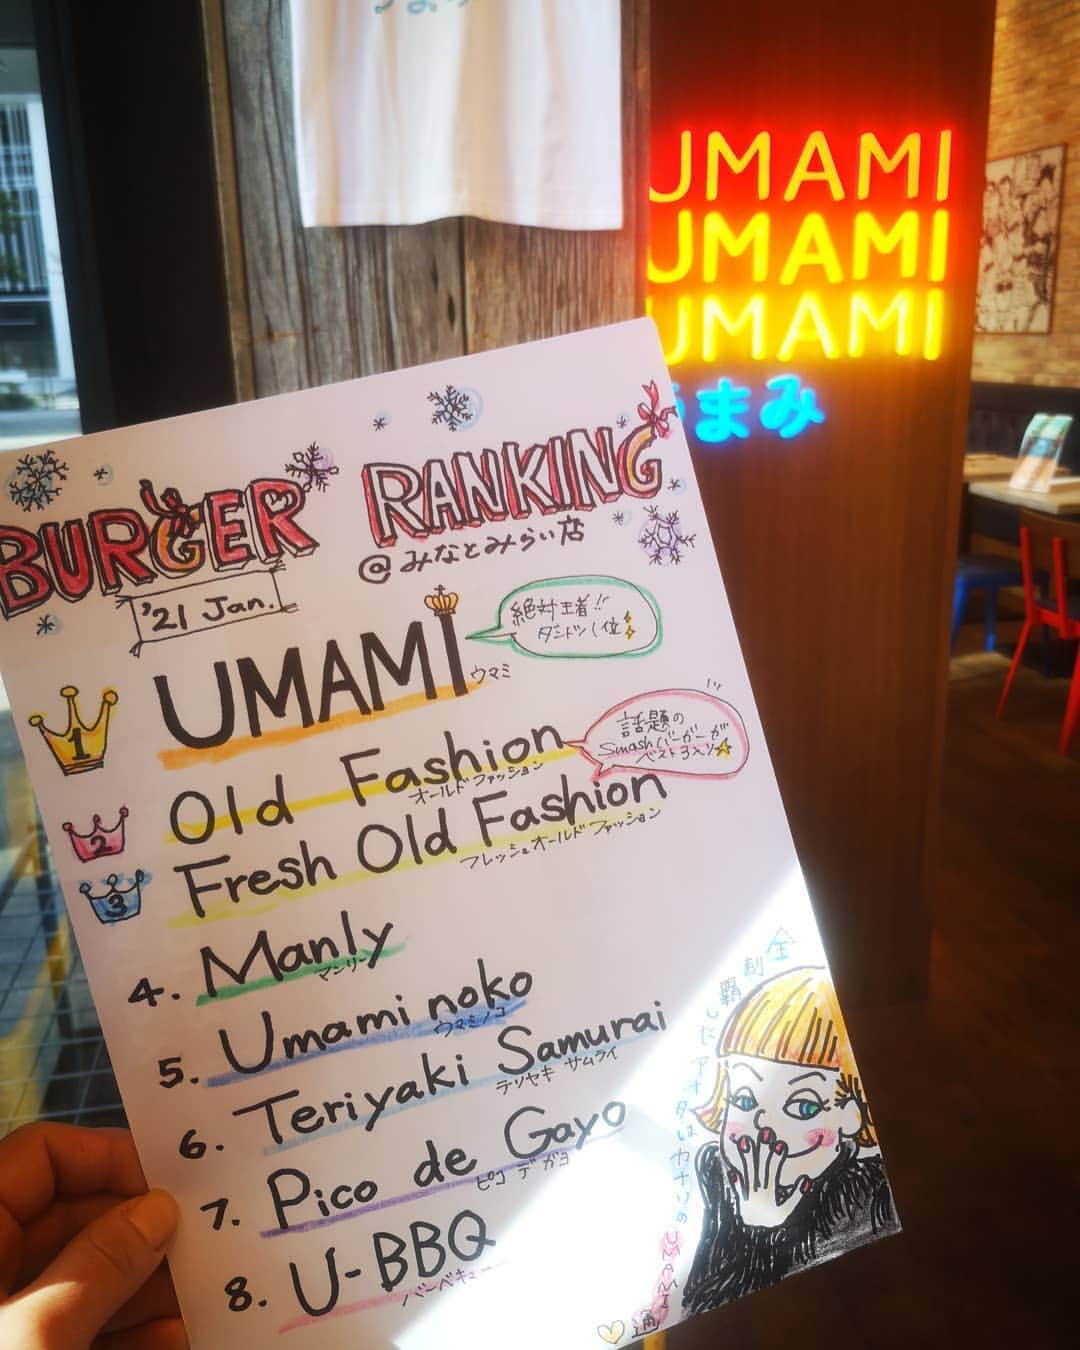 UMAMI
UMAMI
UMAMI
うまみ
BURGER RANKING
@みなとみらい店
'21 Jan.
1
UMAMI
ウマミ
絶対王者!!
ダントツ1位
2
Old Fashion
オールドファッション
話題の
Smashバーガーが
ベスト3入り
3
Fresh Old Fashion
フレッシュオールドファッション
4. Manly
マンリー
5. Umami noko
ウマミノコ
6. Teriyaki Samurai
テリヤキ サムライ
7. Pico de Gayo
ピコ デ ガヨ
8. U-BBQ
バーベキュー
全制覇したアナタはカナリの
UMAMI通